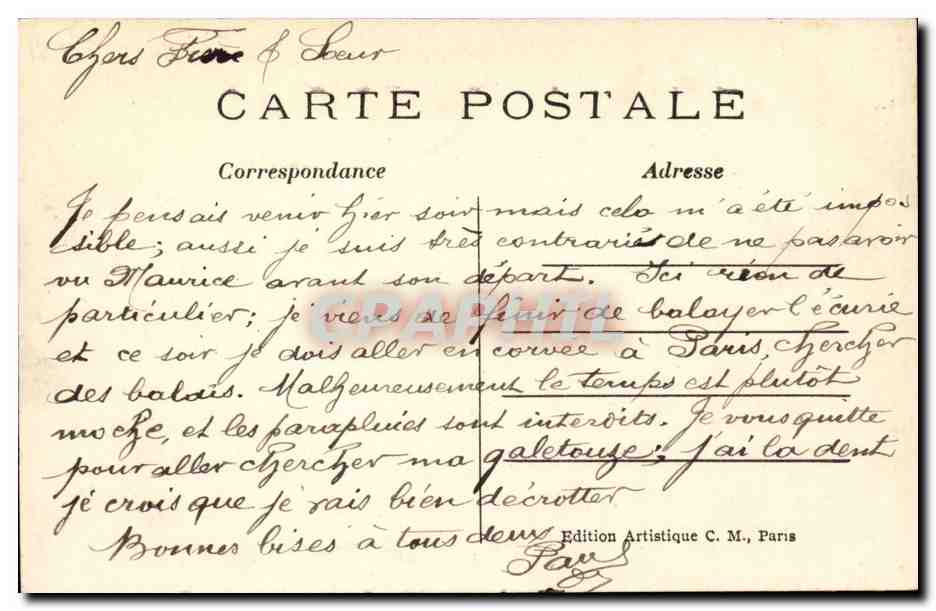 Chers Frère & Sœur
CARTE POSTALE
Correspondance Adresse
Je pensais venir hier soir mais cela m'a été impos
sible; aussi je suis très contrariés de ne pas avoir
vu Maurice avant son départ. Ici rien de
particulier; je viens de finir de balayer l'écurie
et ce soir je dois aller en corvée à Paris, chercher
des balais. Malheureusement le temps est plutôt
moche, et les parapluies sont interdits. Je vous quitte
pour aller chercher ma galetouze; j'ai la dent
je crois que je vais bien décrotter
Bonnes bises à tous deux
Edition Artistique C. M., Paris
Paul
CPAPHIL